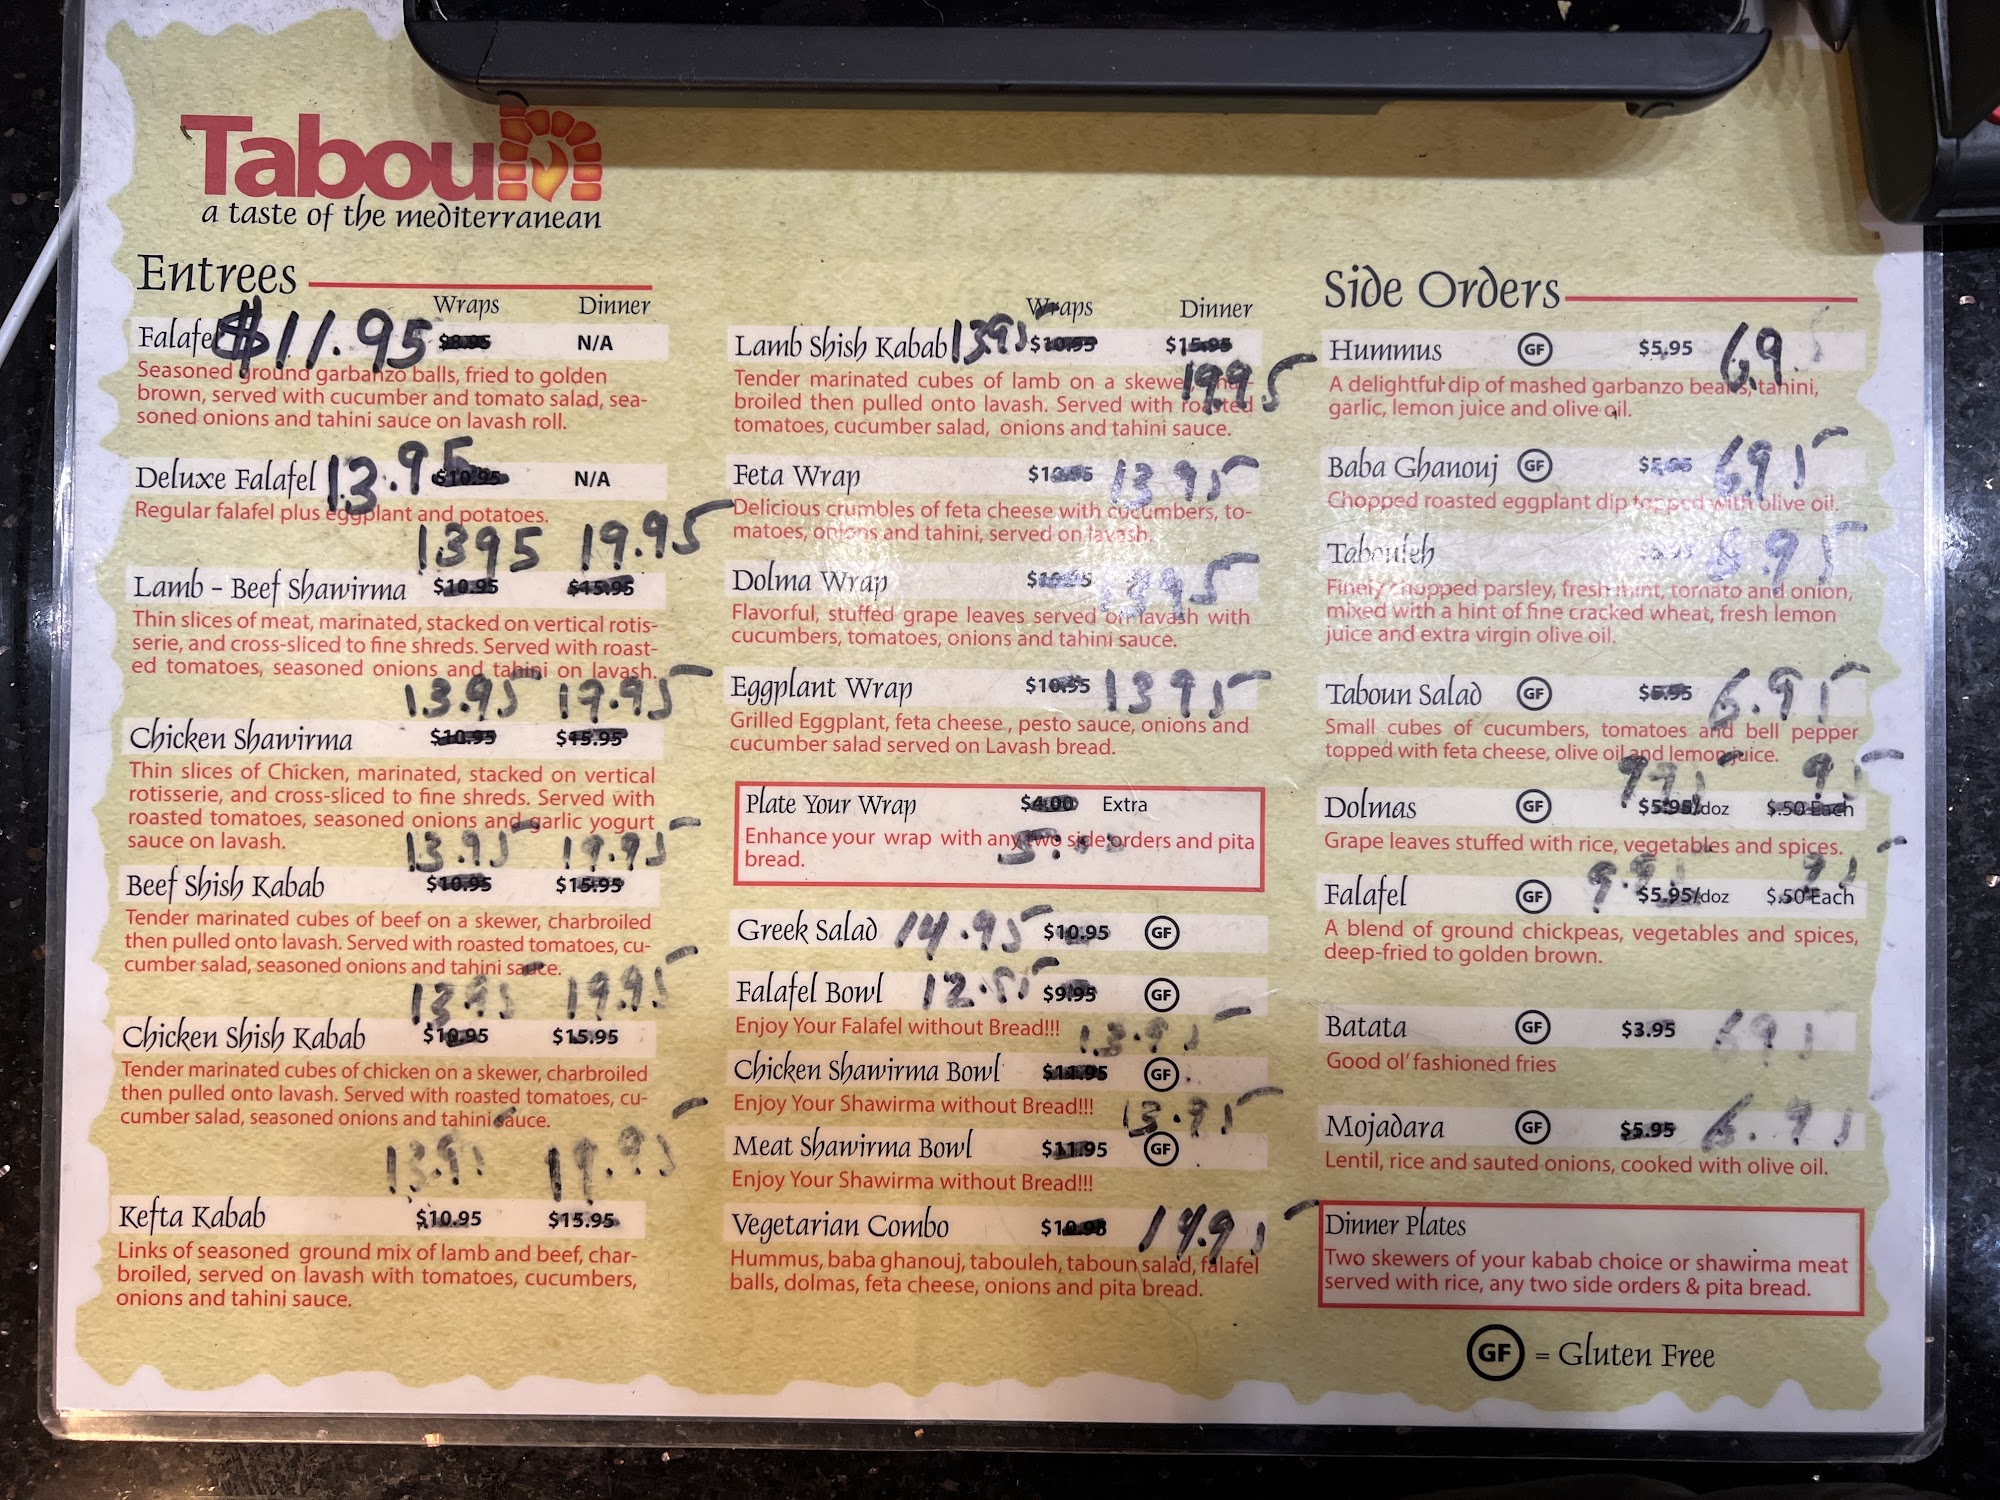 Taboun
a taste of the mediterranean
Entrees
Wraps Dinner
Falafel $11.95 $8.95 N/A
Seasoned ground garbanzo balls, fried to golden
brown, served with cucumber and tomato salad, sea-
soned onions and tahini sauce on lavash roll.
Deluxe Falafel 13.95 $10.95 N/A
Regular falafel plus eggplant and potatoes.
1395 19.95
Lamb - Beef Shawirma $10.95 $15.95
Thin slices of meat, marinated, stacked on vertical rotis-
serie, and cross-sliced to fine shreds. Served with roast-
ed tomatoes, seasoned onions and tahini on lavash.
13.95 19.95
Chicken Shawirma $10.95 $15.95
Thin slices of Chicken, marinated, stacked on vertical
rotisserie, and cross-sliced to fine shreds. Served with
roasted tomatoes, seasoned onions and garlic yogurt
sauce on lavash.
13.95 19.95
Beef Shish Kabab $10.95 $15.95
Tender marinated cubes of beef on a skewer, charbroiled
then pulled onto lavash. Served with roasted tomatoes, cu-
cumber salad, seasoned onions and tahini sauce.
13.95 19.95
Chicken Shish Kabab $10.95 $15.95
Tender marinated cubes of chicken on a skewer, charbroiled
then pulled onto lavash. Served with roasted tomatoes, cu-
cumber salad, seasoned onions and tahini sauce.
13.95 19.95
Kefta Kabab $10.95 $15.95
Links of seasoned ground mix of lamb and beef, char-
broiled, served on lavash with tomatoes, cucumbers,
onions and tahini sauce.
Wraps Dinner
Lamb Shish Kabab 13.95 $10.95 $15.95
19.95
Tender marinated cubes of lamb on a skewer, char-
broiled then pulled onto lavash. Served with roasted
tomatoes, cucumber salad, onions and tahini sauce.
Feta Wrap $10.95 13.95
Delicious crumbles of feta cheese with cucumbers, to-
matoes, onions and tahini, served on lavash.
Dolma Wrap $10.95 13.95
Flavorful, stuffed grape leaves served on lavash with
cucumbers, tomatoes, onions and tahini sauce.
Eggplant Wrap $10.95 1395
Grilled Eggplant, feta cheese, pesto sauce, onions and
cucumber salad served on Lavash bread.
Plate Your Wrap $4.00 Extra
Enhance your wrap with any two side orders and pita
bread.
5.00
Greek Salad 14.95 $10.95 GF
Falafel Bowl $9.95 GF
Enjoy Your Falafel without Bread!!!
13.95
Chicken Shawirma Bowl $11.95 GF
Enjoy Your Shawirma without Bread!!!
13.95
Meat Shawirma Bowl $11.95 GF
Enjoy Your Shawirma without Bread!!!
Vegetarian Combo
Hummus, baba ghanouj, tabouleh, taboun salad, falafel
balls, dolmas, feta cheese, onions and pita bread.
Side Orders
Hummus GF $5.95 6.9
A delightful dip of mashed garbanzo beans, tahini,
garlic, lemon juice and olive oil.
Baba Ghanouj GF $5.95 695
Chopped roasted eggplant dip topped with olive oil.
Tabouleh $5.95
Finely chopped parsley, fresh mint, tomato and onion,
mixed with a hint of fine cracked wheat, fresh lemon
juice and extra virgin olive oil.
Taboun Salad GF $5.95 6.95
Small cubes of cucumbers, tomatoes and bell pepper
topped with feta cheese, olive oil and lemon juice.
995 95
Dolmas GF $5.95/doz $.50 Each
Grape leaves stuffed with rice, vegetables and spices.
Falafel GF $5.95/doz $.50 Each
A blend of ground chickpeas, vegetables and spices,
deep-fried to golden brown.
Batata GF $3.95 695
Good ol' fashioned fries
Mojadara GF $5.95 6.95
Lentil, rice and sauted onions, cooked with olive oil.
Dinner Plates
Two skewers of your kabab choice or shawirma meat
served with rice, any two side orders & pita bread.
GF = Gluten Free